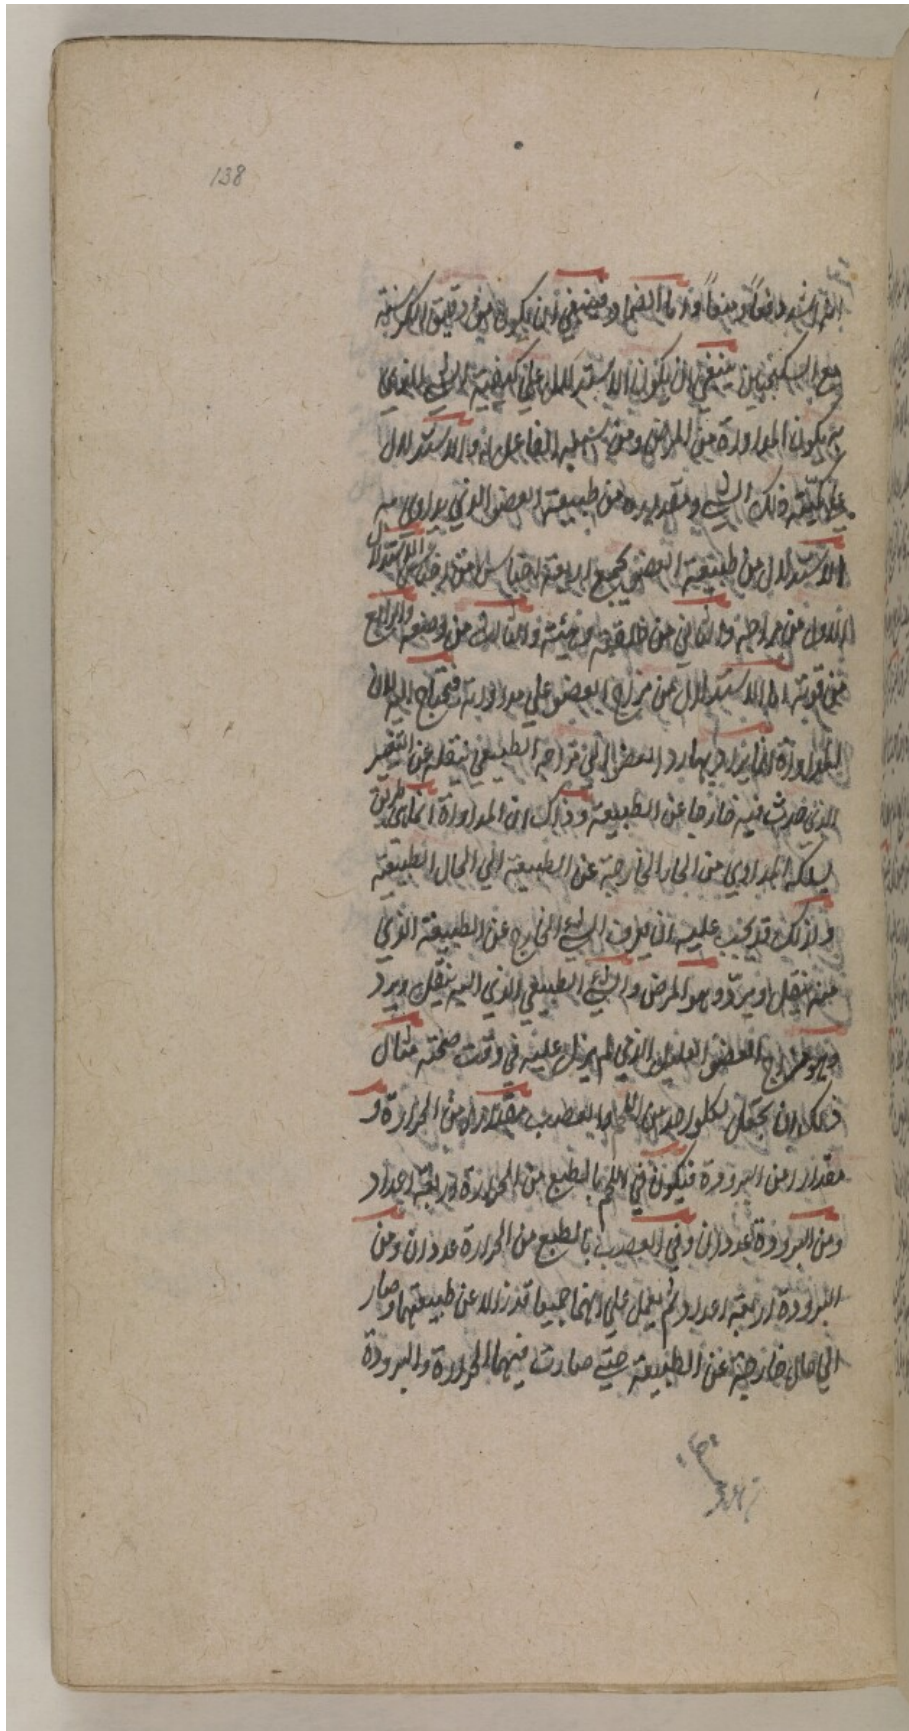 138
مع السكنجبين ينبغي ان يكون الاستدلال علي كيفية الشي الذي
به يكون المداواة من المرض ومن سببه الفاعل له والاستدلال
علي كمية ذلك الشي ومقداره من طبيعة العضو الذي يداوي به
الاستدلال من طبيعة العضو يجمع اربعة اجناس من الاستدلال
الاول من مزاجه والثاني من خلقته وهيئته والثالث من وضعه والرابع
من قوته اما الاستدلال من مزاج العضو علي مداواته فيحتاج اليه لان
المداواة انما يراد بها رد العضو الي مزاجه الطبيعي بنقله عن التغير
الذي حدث فيه خارجا عن الطبيعة وذلك ان المداواة انما هي طريق
يسلكه المداوي من الحال الخارجة عن الطبيعة الي الحال الطبيعية
ولذلك قد يجب عليه ان يعرف الشي الخارج عن الطبيعة الذي
عنه ينقل او يرد وهو المرض والشي الطبيعي الذي اليه ينقل ويرد
وهو مزاج العضو العليل الذي لم يزل عليه في وقت صحته مثال
ذلك ان نجعل لكل واحد من اللحم والعصب مقدارا من الحرارة و
مقدارا من البرودة فيكون في اللحم بالطبع من الحرارة اربعة اعداد
ومن البرودة عددان وفي العصب بالطبع من الحرارة عددان ومن
البرودة اربعة اعداد ثم نعمل علي انهما جميعا قد زالا عن طبيعتهما وصار
الي حال خارجة عن الطبيعة حتي صارت فيهما الحرارة والبرودة